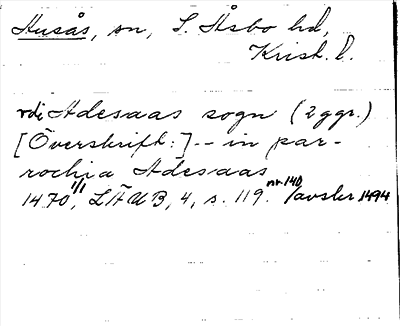 Husås, sn, S. Åsbo hd,
Krist. l.
vdi Adesaas sogn (2 ggr.)
[Överskrift:] -- in par-
rochia Adesaas
1470 1/1, LÄUB, 4, s. 119. nr 140 /avskr 1494